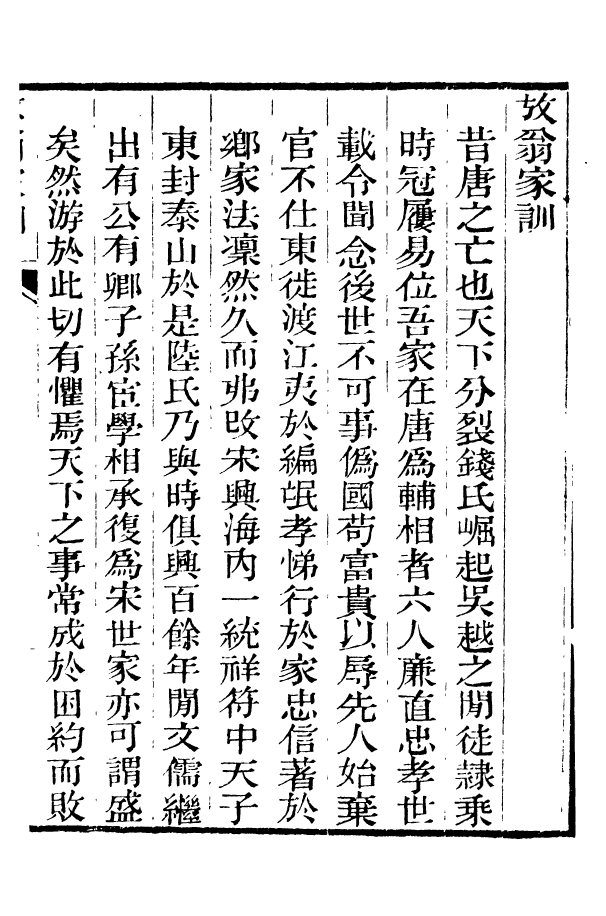 放翁家訓
昔唐之亡也天下分裂錢氏崛起吳越之閒徒隷乘
時冠屨易位吾家在唐爲輔相者六人廉直忠孝世
載令聞念後世不可事僞國苟富貴以辱先人始棄
官不仕東徙渡江夷於編氓孝悌行於家忠信著於
鄉家法凜然久而弗改宋興海內一統祥符中天子
東封泰山於是陸氏乃與時俱興百餘年閒文儒繼
出有公有卿子孫宦學相承復爲宋世家亦可謂盛
矣然游於此切有懼焉天下之事常成於困約而敗